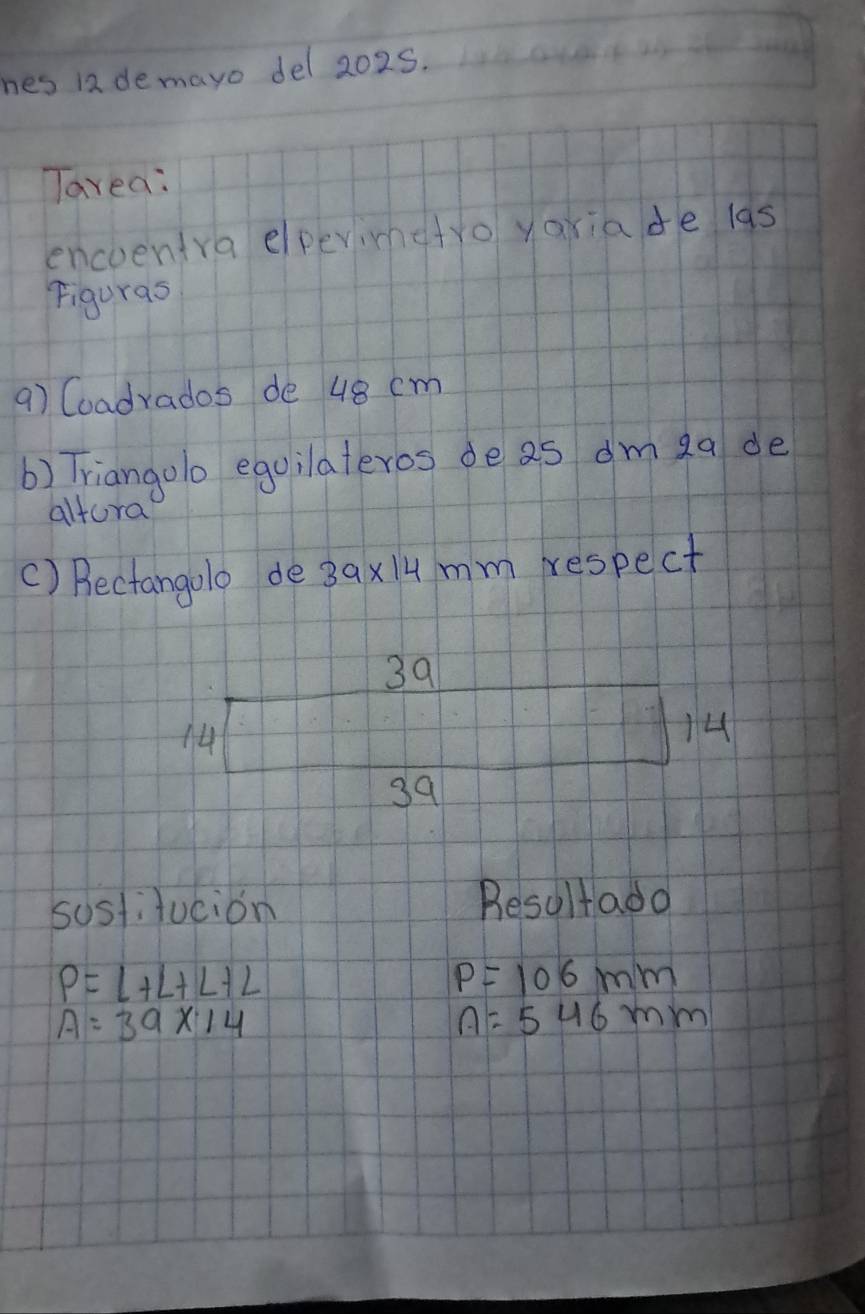 nes 12 de mayo del 2025.
Tarea:
encuentra el perimetro y aria de las
Figuras
a) Cuadrados de 48 cm
b) Triangulo equilateros de 25 dm 29 de
altura
c) Rectangulo de 39x14 mm respect
39
14 14
39
sustitución Resultado
P= L+L+L+L P= 106 mm
A= 39 x 14 A= 546 mm